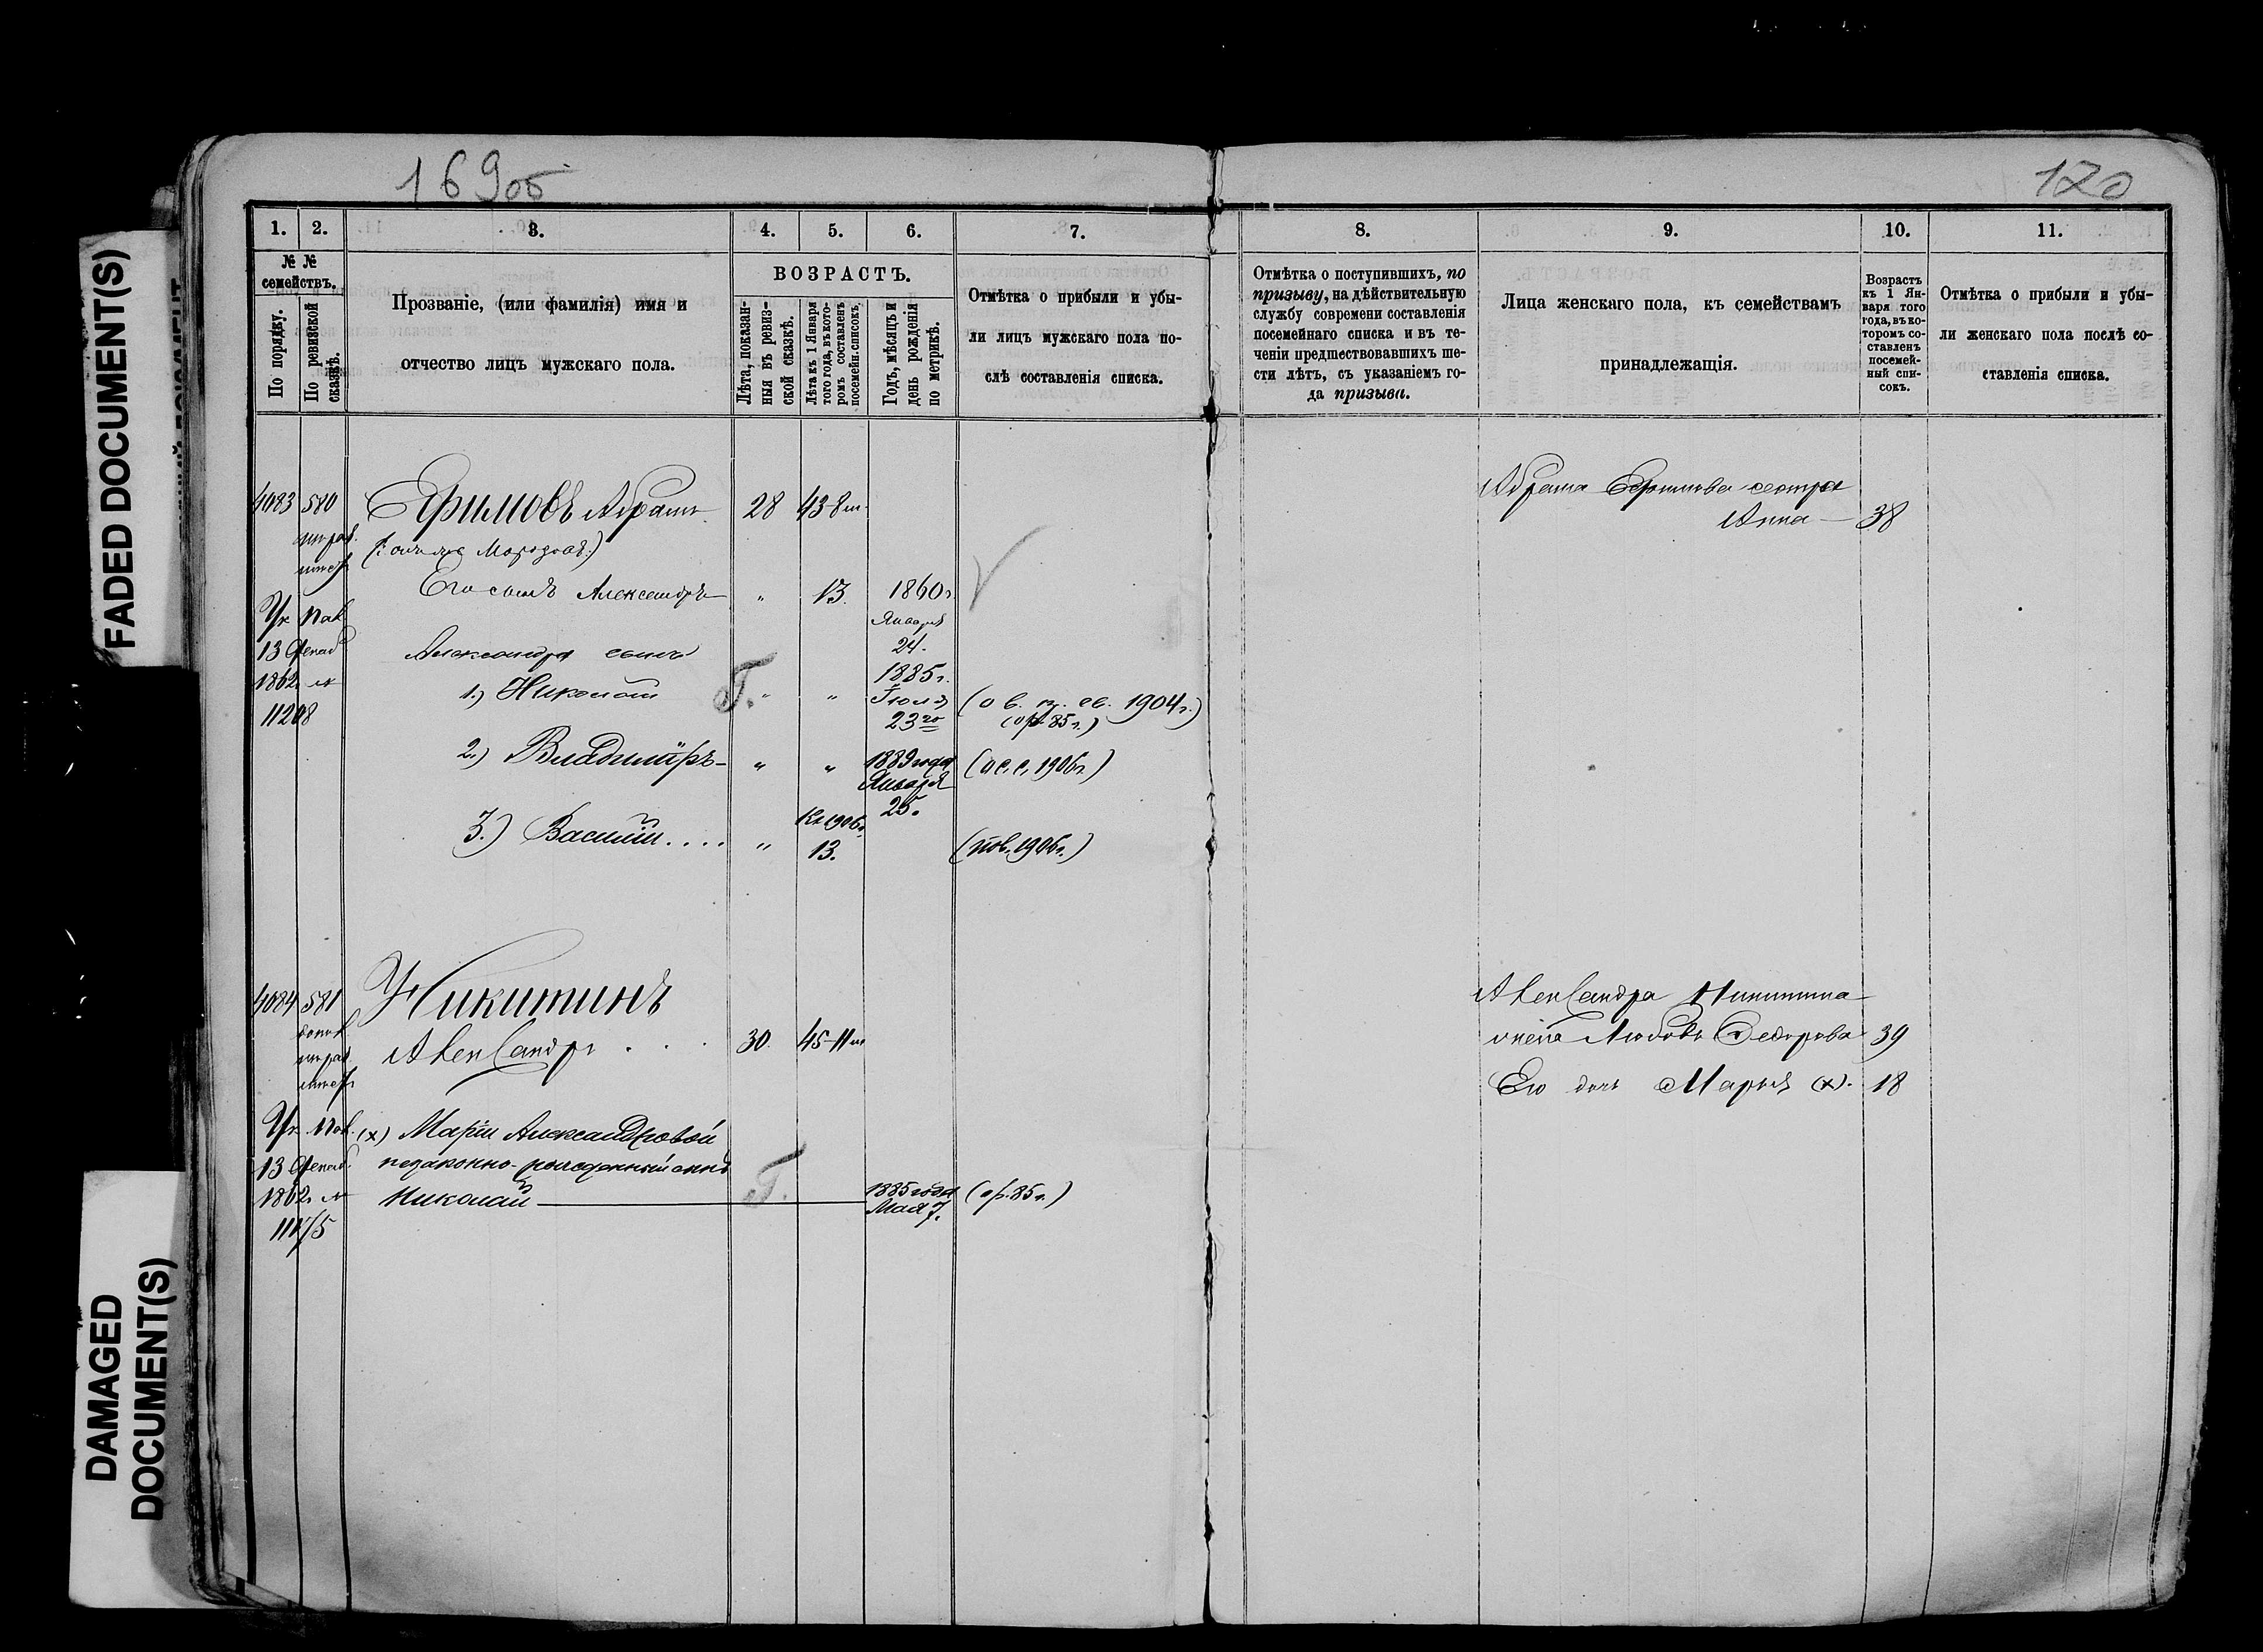 FADED DOCUMENT(S)
DAMAGED
DOCUMENT(S)
169об
120
1. 2. 3. 4. 5. 6. 7.
№ №
семействъ.
По порядку.
По ревизской
сказкѣ.
Прозваніе, (или фамилія) имя и
отчество лицъ мужскаго пола.
ВОЗРАСТЪ.
Лѣта, показан-
ныя въ ревиз-
ской сказкѣ.
Лѣта къ 1 Января
того года, въ кото-
ромъ составленъ
посемейн. списокъ.
Годъ, мѣсяцъ и
день рожденія
по метрикѣ.
Отмѣтка о прибыли и убы-
ли лицъ мужскаго пола по-
слѣ составленія списка.
4083 580 Ефимовъ Абрамъ 28 43-8 м.
Его сынъ Александръ " 13. 1860 г.
Января
24.
Ук Каз
13 Декаб
1862 №
11208
Александра сынъ
1.) Николай Г. " " 1885 г.
Іюля
23го
(о в. п. св. 1904 г.)
(ор. 85 г.)
2.) Владиміръ " " 1889 года
Января
25.
(о с. с. 1906 г.)
3.) Василій.... " Къ 1906 г.
13.
4084 581 Никитинъ
Александръ . . . 30. 45-11 м
Ук. Каз.
13 Декаб.
1862 №
(х) Маріи Александровой
незаконно-рожденный сынъ
Николай Г. 1885 года
Мая 7.
(ор. 85 г.)
8. 9. 10. 11.
Отмѣтка о поступившихъ, по
призыву, на дѣйствительную
службу современи составленія
посемейнаго списка и въ те-
ченіи предшествовавшихъ ше-
сти лѣтъ, съ указаніемъ го-
да призыва.
Лица женскаго пола, къ семействамъ
принадлежащія.
Возрастъ
къ 1 Ян-
варя того
года, въ ко-
торомъ со-
ставленъ
посемей-
ный спи-
сокъ.
Отмѣтка о прибыли и убы-
ли женскаго пола послѣ со-
ставленія списка.
Абрама Ефимова сестра
Анна — 38
Александра Никитина
жена Любовь Федорова 39
Его дочь Марья (х). 18